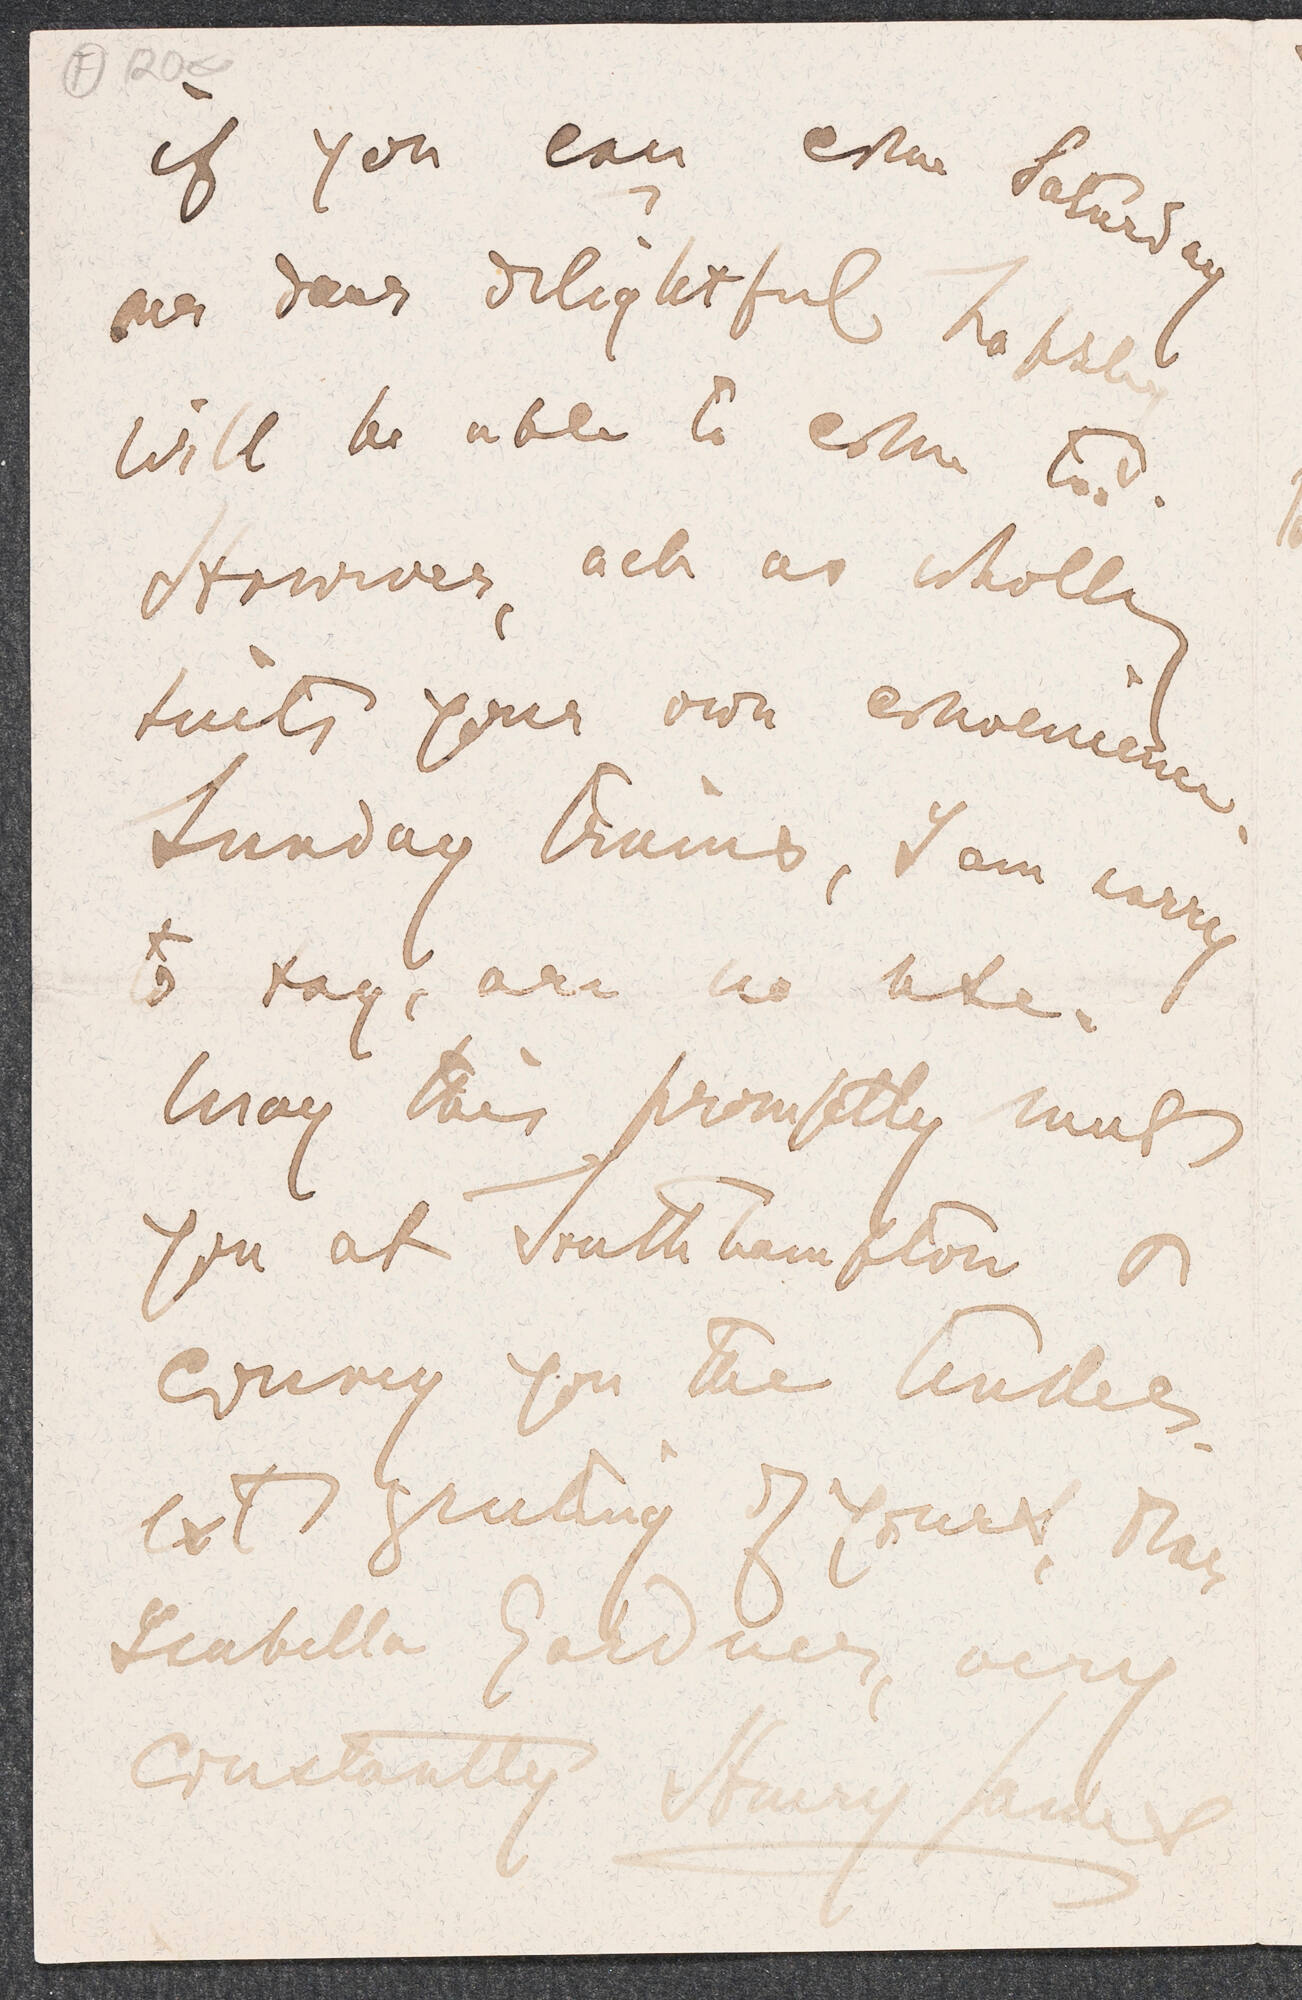 if you can come Saturday
our dear delightful Lapsley
will be able to come too.
However, act as wholly
suits your own convenience.
Sunday trains, I am sorry
to say, are no use.
May this promptly meet
you at Southampton &
convey you the tender-
est greeting of yours, dear
Isabella Gardner, very
constantly Henry James